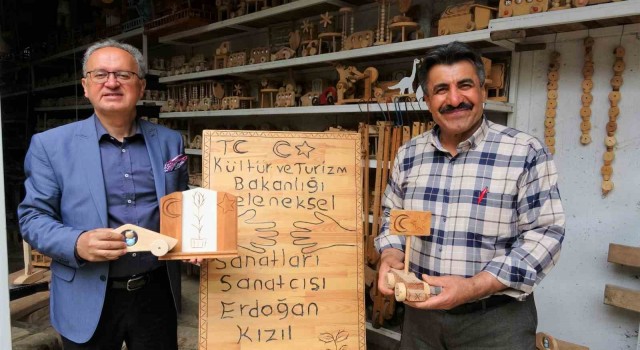 TC
Kültür ve Turizm
Bakanlığı
Geleneksel
Sanatları
Sanatcısı
Erdoğan
Kızıl